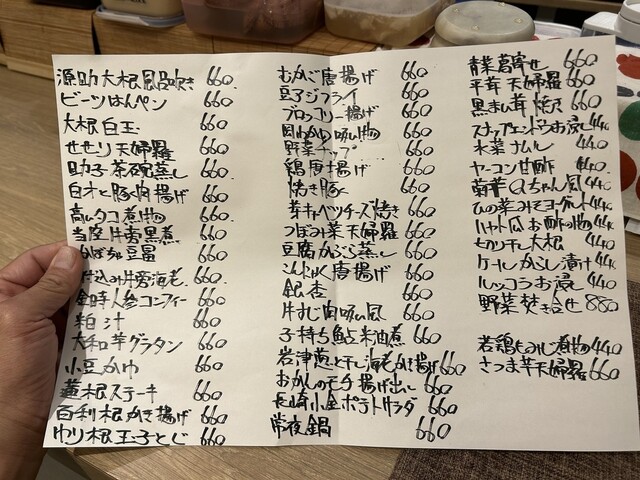 源助大根風呂吹き 660.
ビーツはんぺん 660
大根白玉 660
せせり天婦羅 660
助子茶碗蒸し 660.
白才と豚肉揚げ 660
高山タコ煮物 660.
当座片旁黒煮 660
かぼちゃ豆富 660
仕込み 海老 660.
金時人参コンフィー 660
粕汁 660
大和芋グラタン 660
小豆かゆ 660
蓮根ステーキ 660
百利根かき揚げ 660
ゆり根玉子とじ 660
むかご唐揚げ 660
豆アジフライ 660
ブロッコリー揚げ 660
吸い物 660
野菜チップ 660
鶏唐揚げ 660
焼き豚 660
芽キャベツチーズ焼き 660
つぼみ菜天婦羅 660
豆腐かぶら蒸し 660
こんにゃく唐揚げ 660
銀杏 660
牛すじ肉吸い風 660
子持ち鮎米油煮 660
岩津葱と干し海老かき揚げ 660
おかんの毛 揚げ出し 660
長崎小金ポテトサラダ 660
常夜鍋 660
青菜葛寄せ 660
平茸天婦羅 660
黒まい茸焼き 660
スナップエンドウお浸し 440
水菜ナムル 440
ヤーコン甘酢 440.
菊芋Qちゃん風 440
ひの菜みそヨーグルト 440
ハヤトウリお酢の物 440
セリチし大根 440
ケールからし漬け 440
ルッコラお浸し 440
野菜焚き合せ 880
若鶏もつにじ煮物 440
さつま芋天婦羅 660